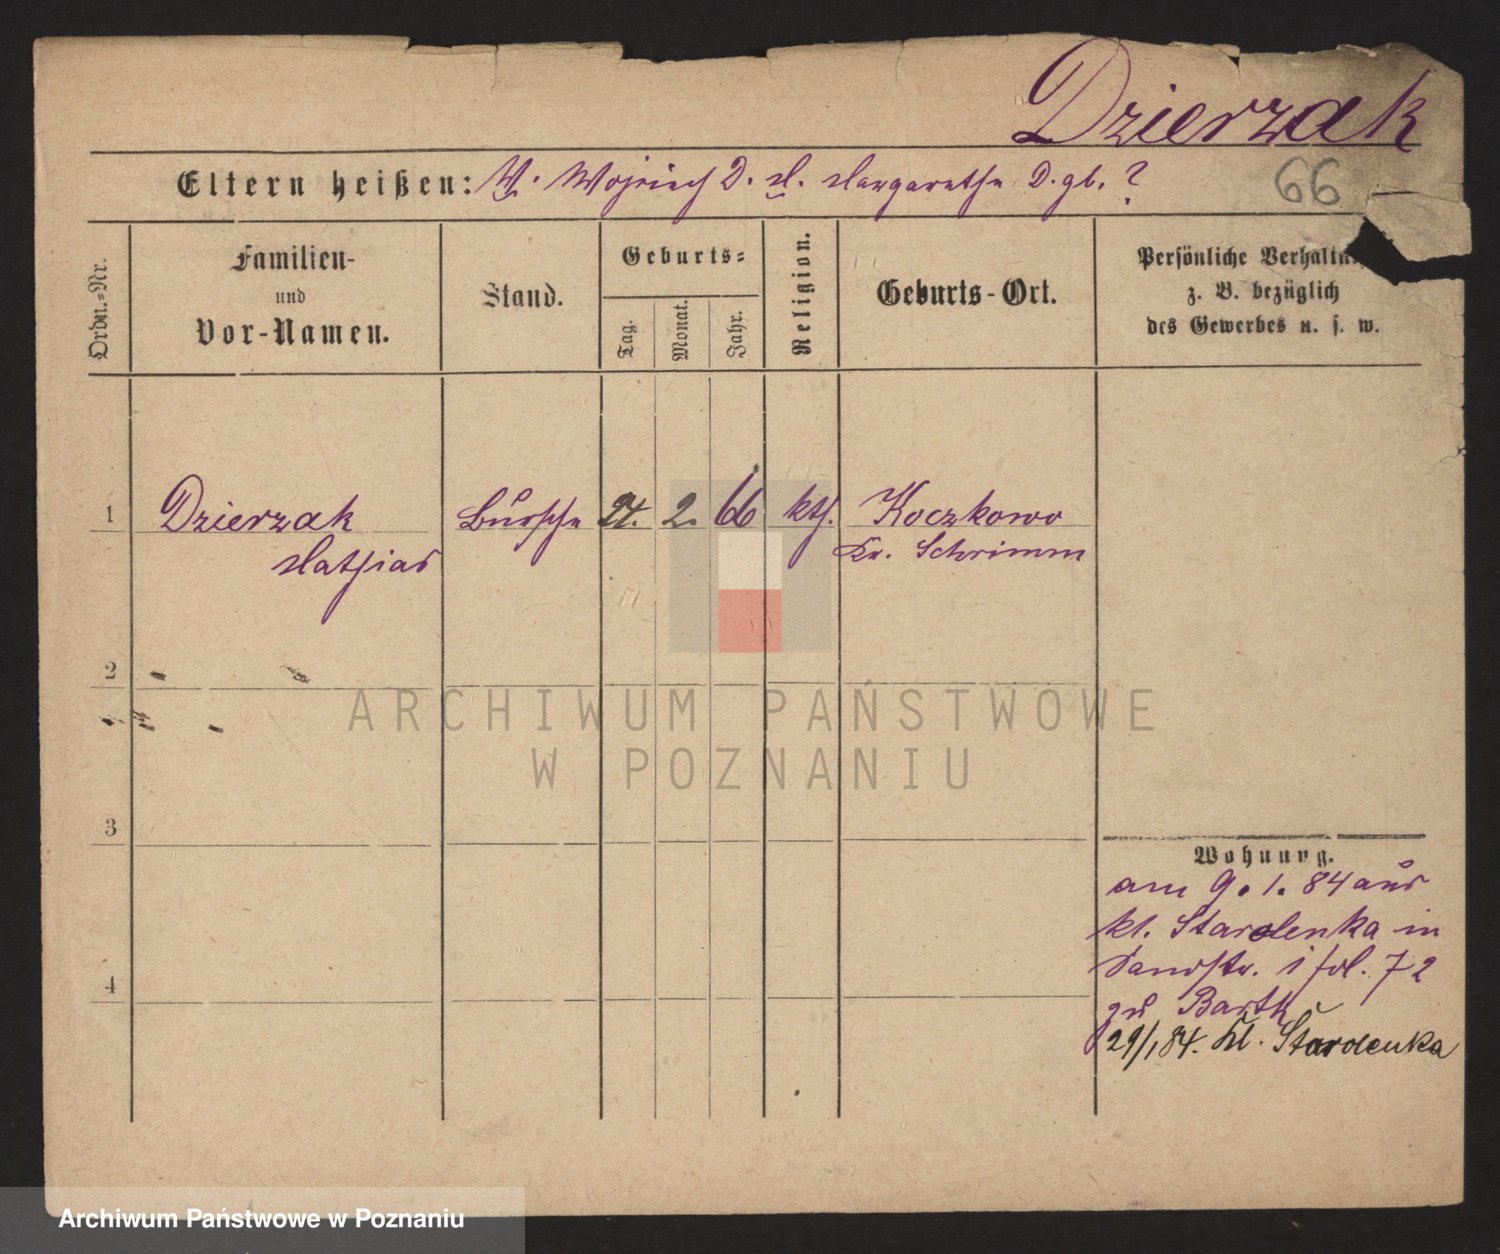 Dzierzak
Eltern heißen: V. Wojciech D. M. Margarethe D. gb. ?
66
Ordn.-Nr.
Familien-
und
Vor-Namen.
Stand.
Geburts-
Tag.
Monat.
Jahr.
Religion.
Geburts-Ort.
Persönliche
z. B. bezüglich
des Gewerbes u. s. w.
1 Dzierzak Bursche 24. 2. 66 kth. Koczkowo
Mathias Kr. Schrimm
2
3
Wohnung.
am 9. 1. 84 aus
kl. Starolenka in
4
72
zu Bartk
29/1 84. Kl. Starolenka
ARCHIWUM PAŃSTWOWE
W POZNANIU
Archiwum Państwowe w Poznaniu